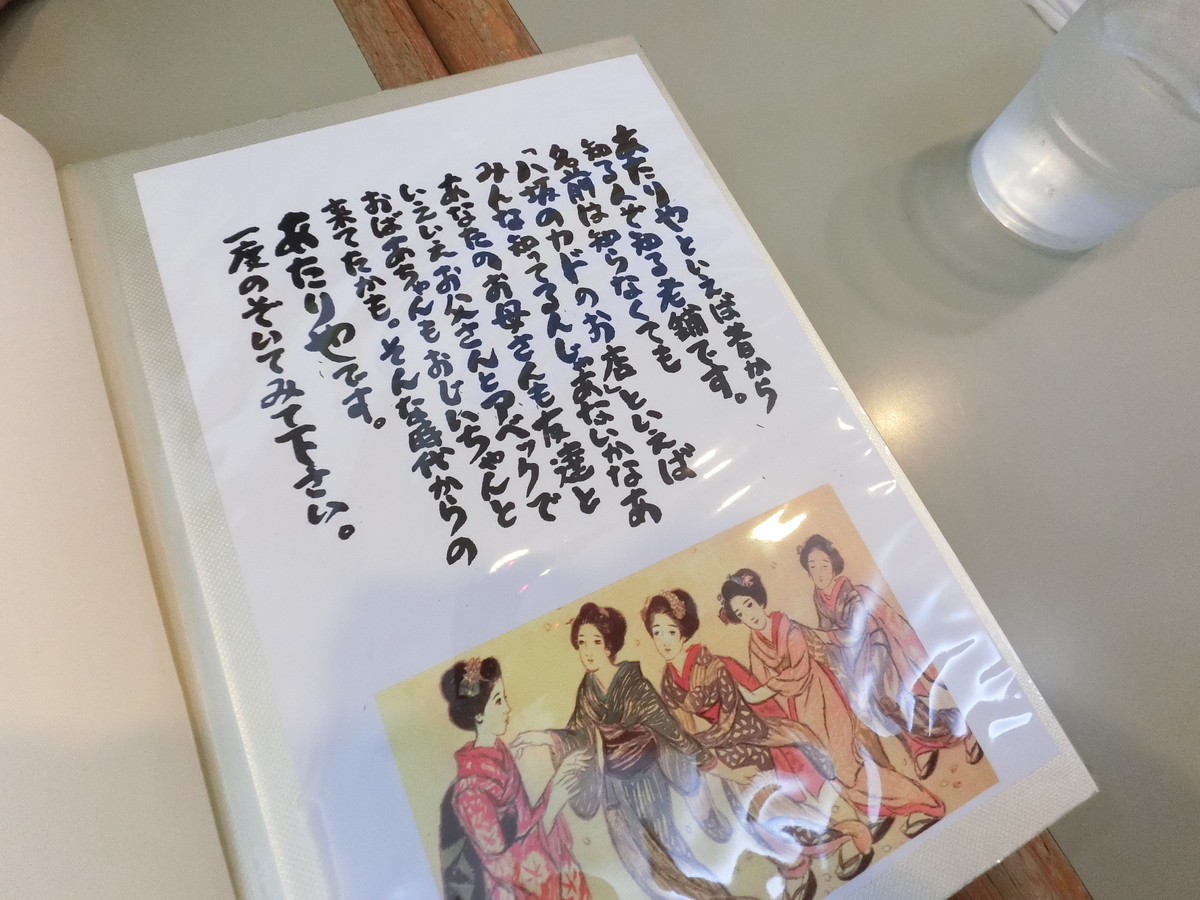 あたりやといえば昔から
知る人ぞ知る老舗です。
名前は知らなくても
「八坂のカドのお店」といえば
みんな知ってるんじゃあないかなあ
あなたのお母さんも友達と
いえいえお父さんとアベックで
おばあちゃんもおじいちゃんと
来てたかも。そんな時代からの
あたりやです。
一度のぞいてみて下さい。